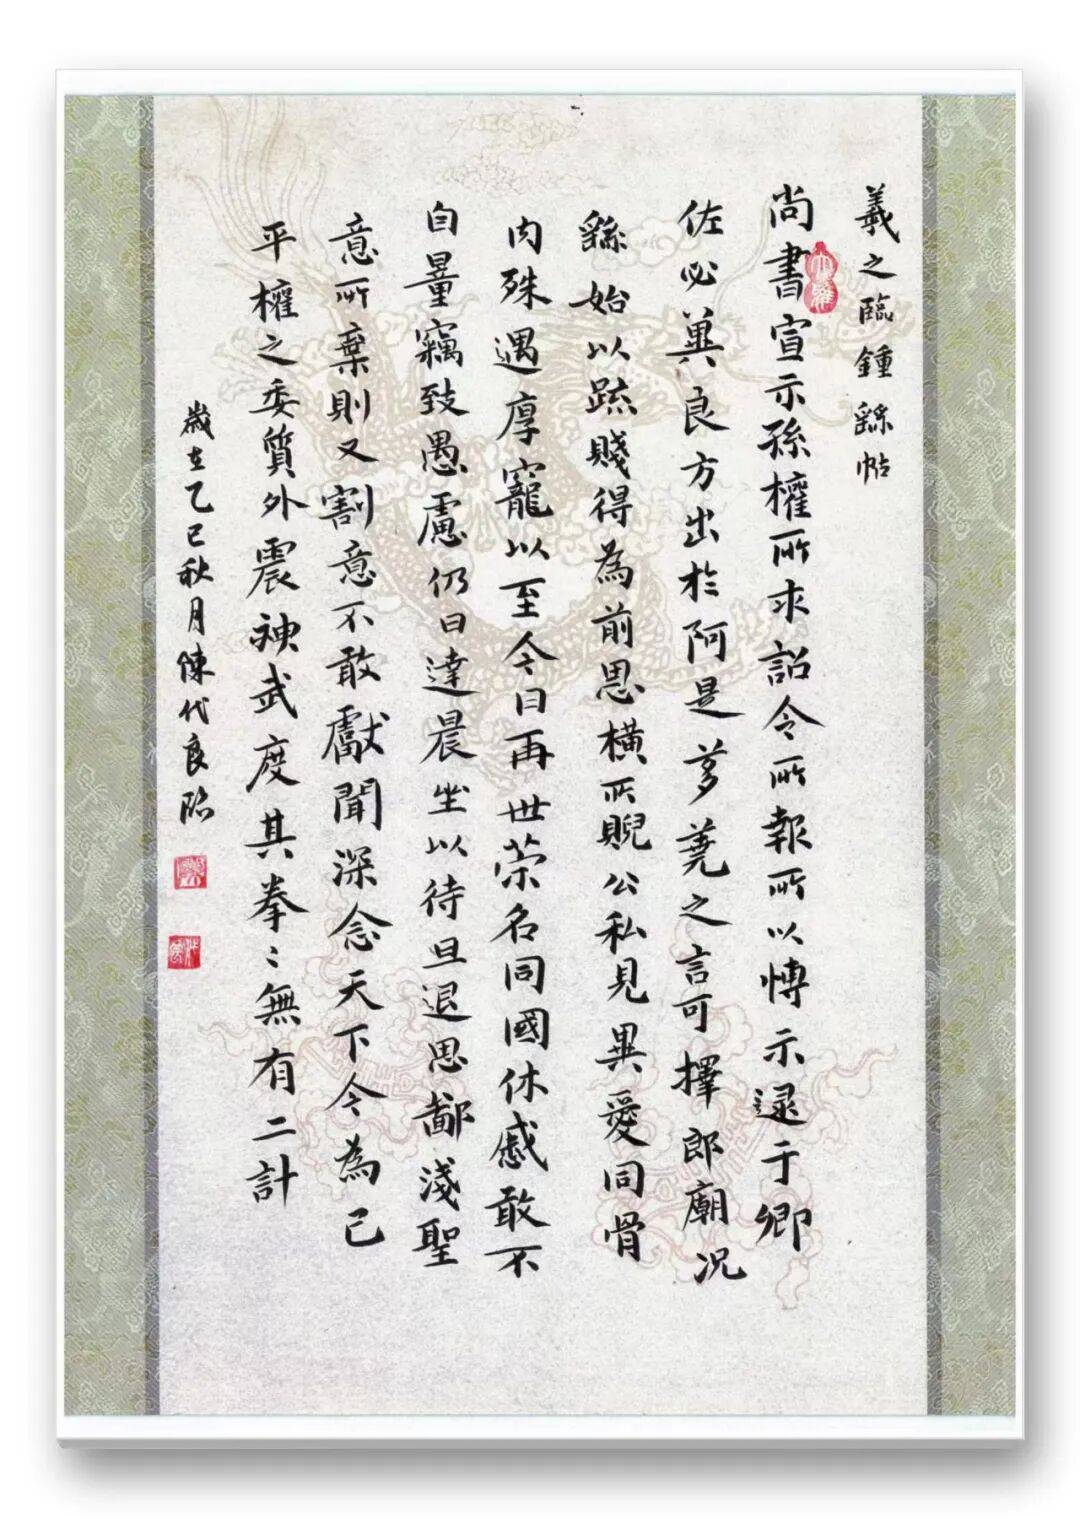 羲之臨鍾繇帖
尚書宣示孫權所求詔令所報所以博示逮于卿
佐必冀良方出於阿是芻蕘之言可擇郎廟況
繇始以疏賤得為前思橫所睨公私見異愛同骨
肉殊遇厚寵以至今日再世荣名同國休慼敢不
自量竊致愚慮仍日達晨坐以待旦退思鄙淺聖
意所棄則又割意不敢獻聞深念天下今為已
平權之委質外震神武度其拳〻無有二計
歲在乙巳秋月陳代良臨
大雅